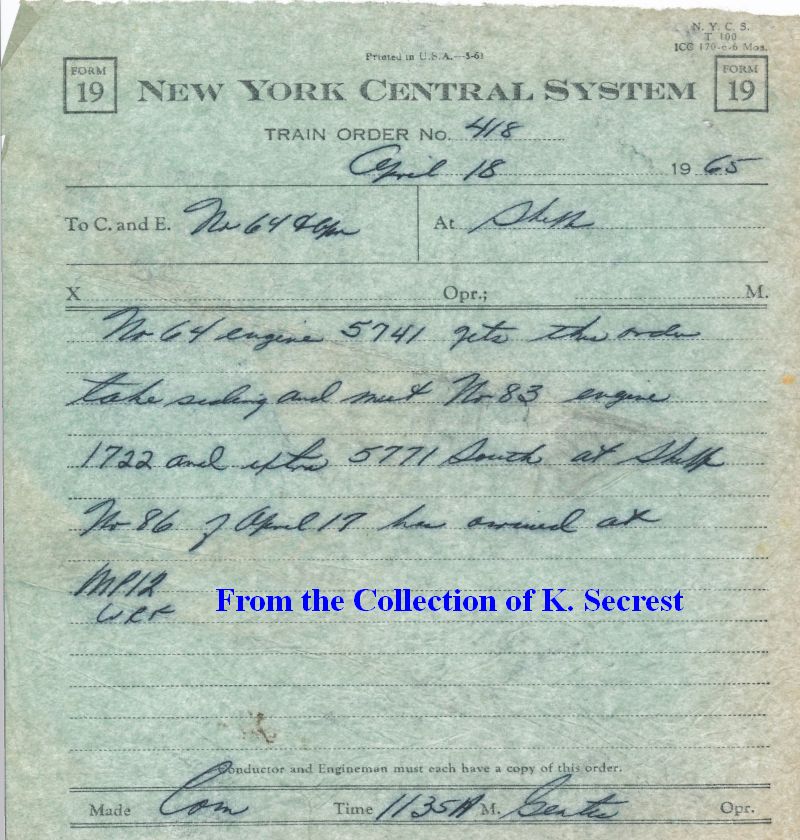 N. Y. C. S.
T 100
ICC 170-c-6 Mos.
Printed in U.S.A.—3-61
FORM 19 NEW YORK CENTRAL SYSTEM FORM 19
TRAIN ORDER No. 418
April 18 1965
To C. and E. No 64 & Opr At Shiff
X Opr.; M.
No 64 engine 5741 gets this order
take siding and meet No 83 engine
1722 and extra 5771 South at Shiff
No 86 of April 17 has arrived at
MP12
From the Collection of K. Secrest
Conductor and Engineman must each have a copy of this order.
Made Com Time 1135A M. Opr.